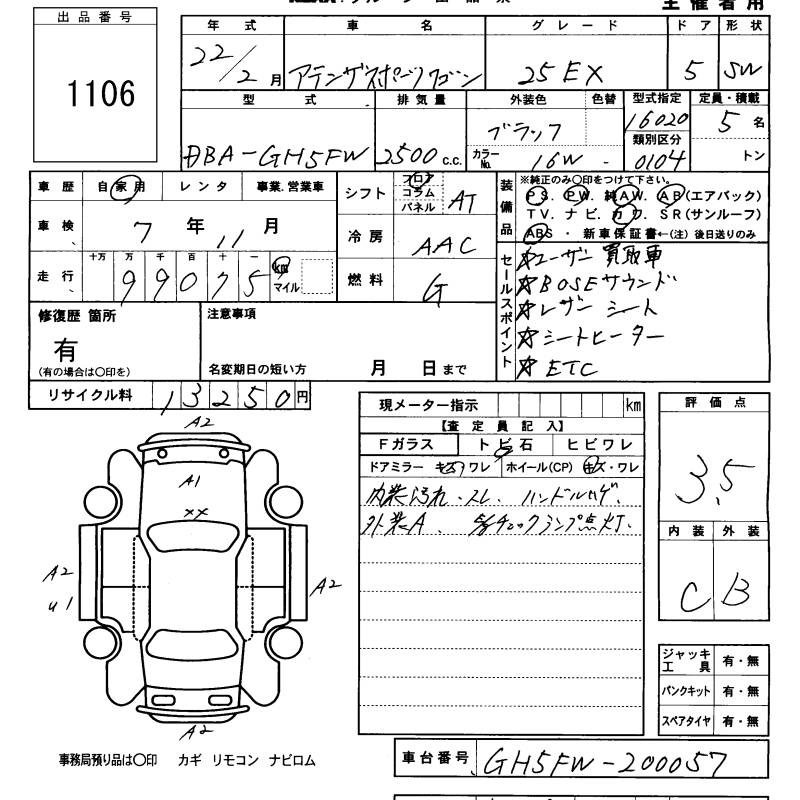 主催者用
出品番号
1106
年式 車名 グレード ドア 形状
22/2月 アテンザスポーツワゴン 25EX 5 SW
型式 排気量 外装色 色替 型式指定 定員・積載
DBA-GH5FW 2500 c.c. ブラック 16020 5名
カラーNo. 16W - 類別区分 0104 トン
車歴 自家用 レンタ 事業.営業車
車検 7年11月
十万 万 千 百 十 一
走行 99075 km マイル
シフト フロア コラム パネル AT
冷房 AAC
燃料 G
装備品
※純正のみ〇印をつけて下さい。
PS. PW. 純AW. AB(エアバック)
TV. ナビ. カワ. SR(サンルーフ)
ABS・新車保証書←(注)後日送りのみ
セールスポイント
☆ユーザー買取車
☆BOSEサウンド
☆レザーシート
☆シートヒーター
☆ETC
修復歴 箇所
有
(有の場合は〇印を)
注意事項
名変期日の短い方 月 日まで
リサイクル料 13250円
A2
A1
XX
A2
U1
A2
A2
事務局預り品は〇印 カギ リモコン ナビロム
現メーター指示 km
【査定員記入】
Fガラス トビ石 ヒビワレ
ドアミラー キズワレ ホイール(CP) キズ・ワレ
内装汚れ・スレ ハンドルハゲ.
外装A. チェックランプ点灯.
評価点
3.5
内装 外装
C B
ジャッキ工具 有・無
パンクキット 有・無
スペアタイヤ 有・無
車台番号 GH5FW-200057